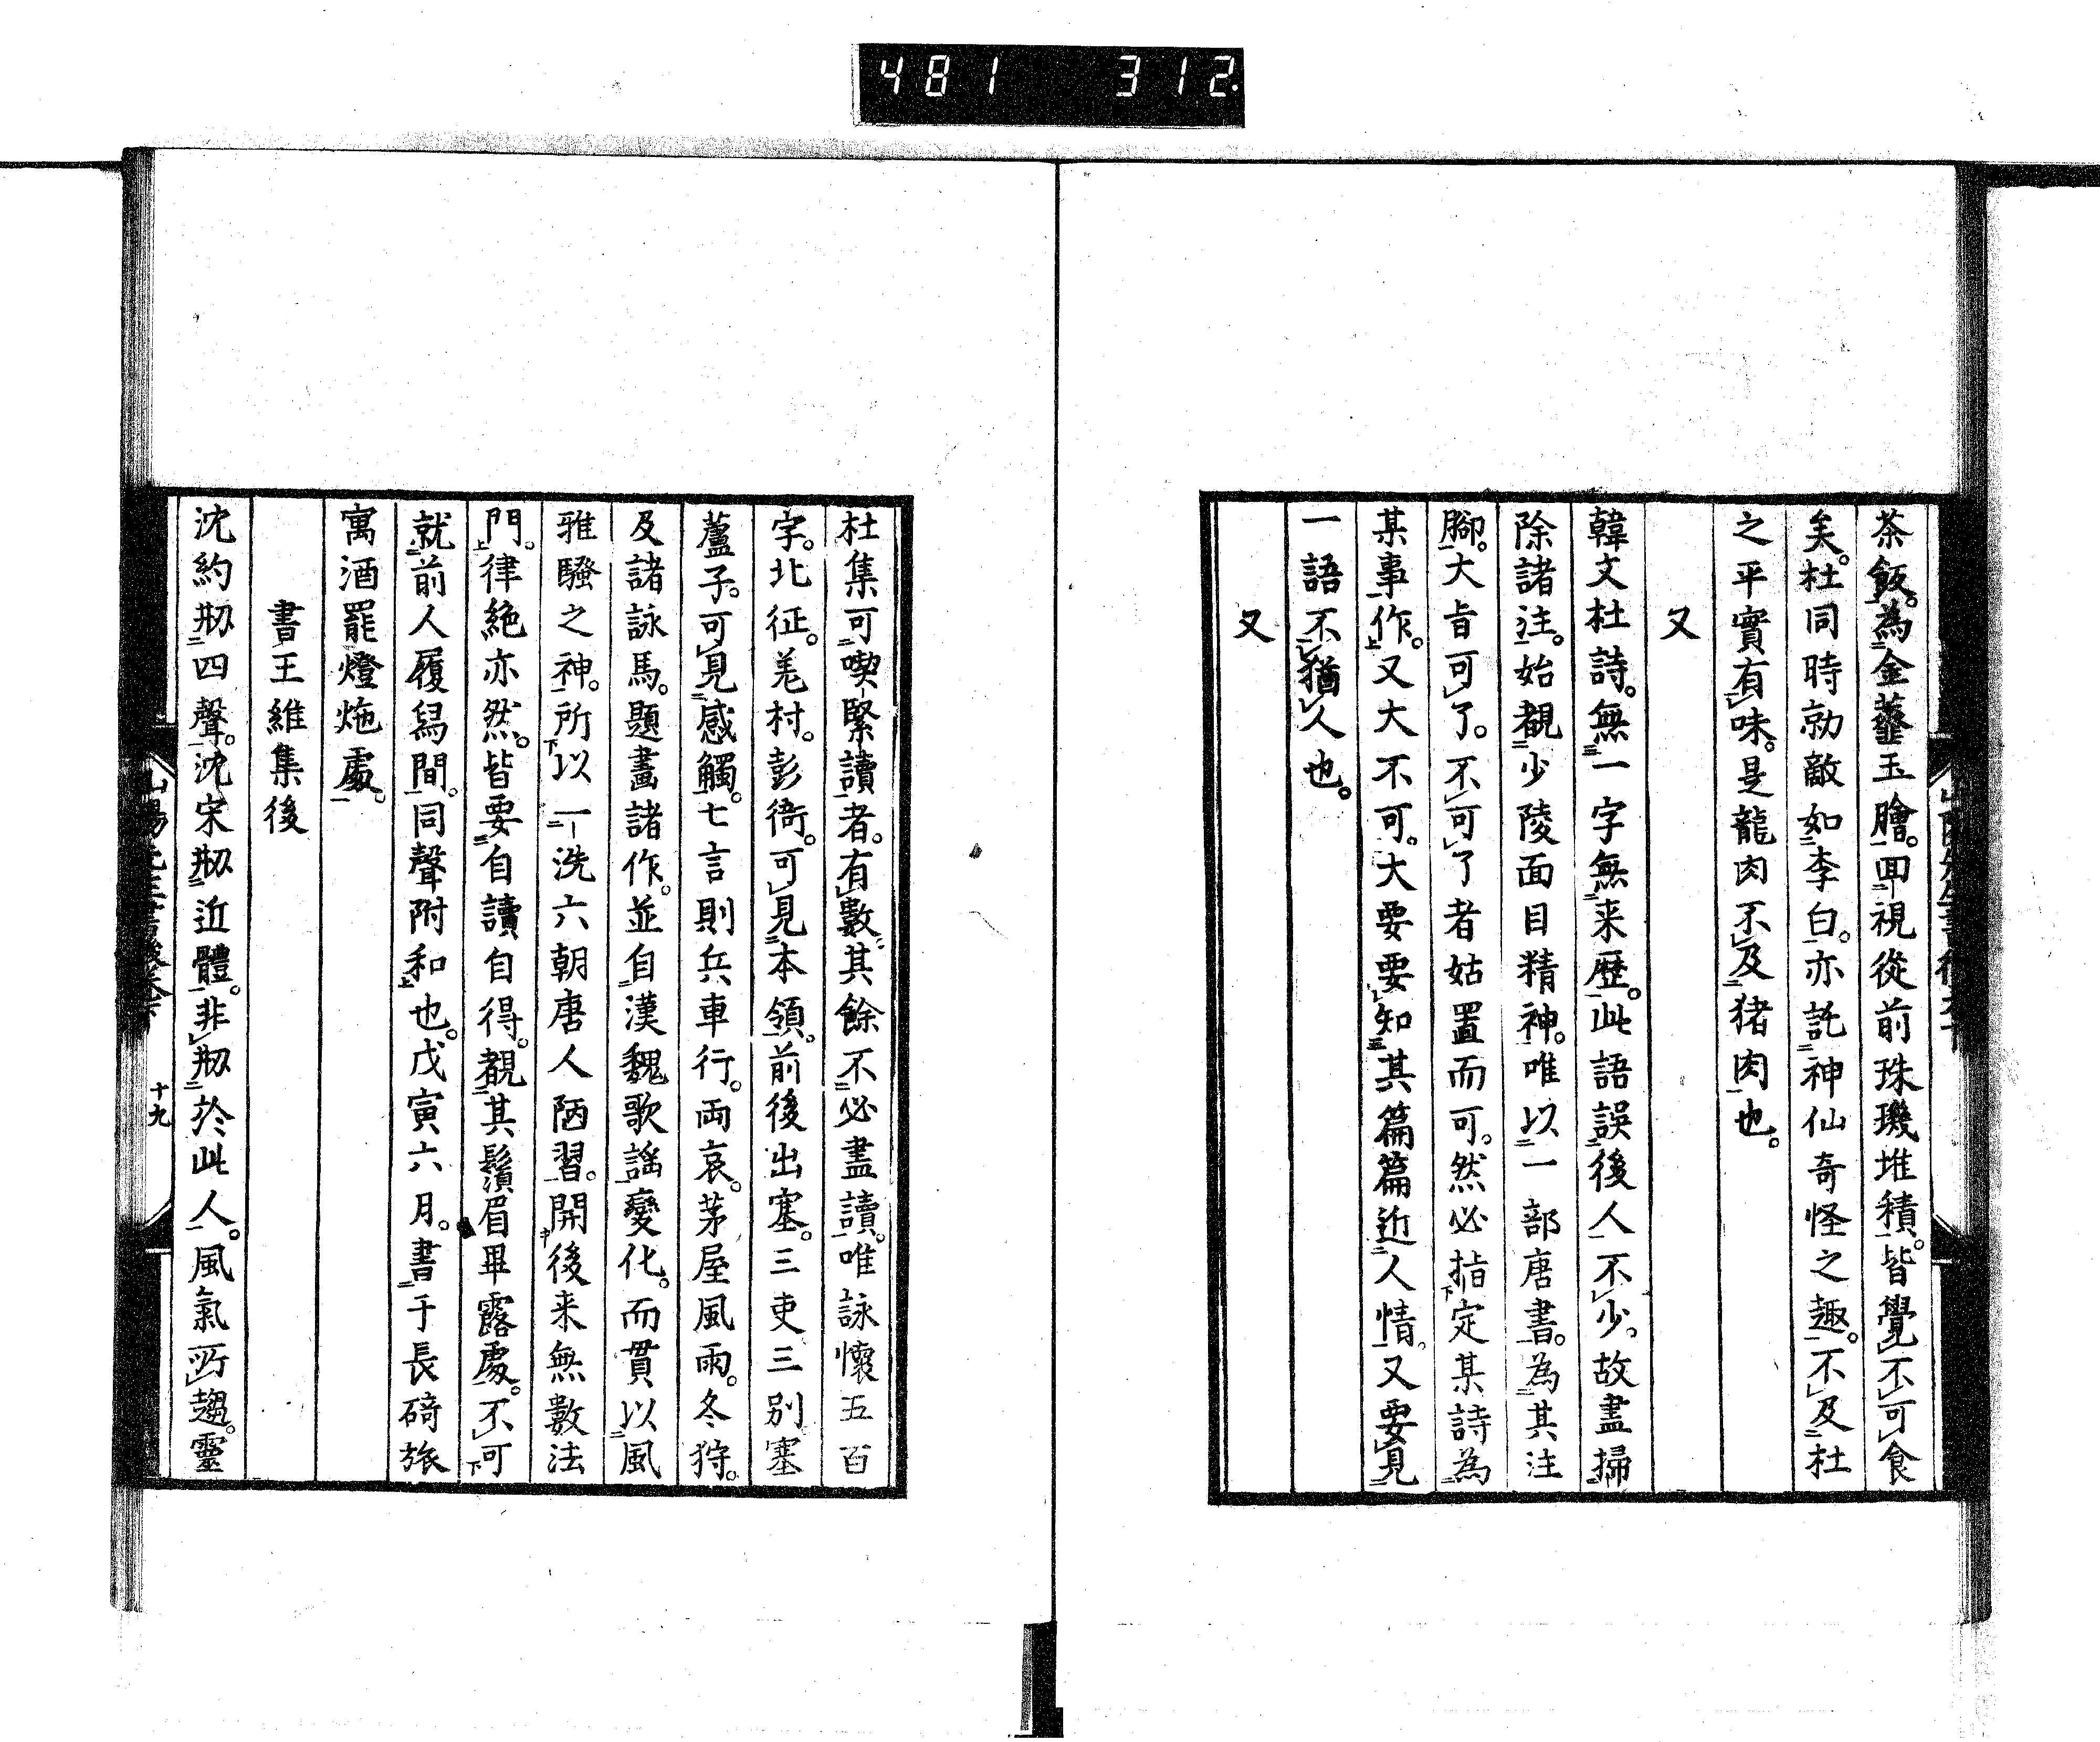 481 312.
茶飯。為金虀玉膾。回視從前珠璣堆積。皆覺不可食
矣。杜同時勍敵如李白。亦託神仙奇怪之趣。不及杜
之平實有味。是龍肉不及猪肉也。
又
韓文杜詩。無一字無来歴。此語誤後人不少。故盡掃
除諸注。始覩少陵面目精神。唯以一部唐書。為其注
腳。大旨可了。不可了者姑置而可。然必指定某詩為
某事作。又大不可。大要要知其篇篇近人情。又要見
一語不猶人也。
又
杜集可喫緊讀者。有數其餘不必盡讀。唯詠懷五百
字。北征。羌村。彭衙。可見本領。前後出塞。三吏三別塞
蘆子。可見感觸。七言則兵車行。両哀。茅屋風雨。冬狩。
及諸詠馬。題畫諸作。並自漢魏歌謡變化。而貫以風
雅騷之神。所以一洗六朝唐人陋習。開後来無數法
門。律絶亦然。皆要自讀自得。覩其鬚眉畢露處。不可
就前人履舄間。同聲附和也。戊寅六月。書于長碕旅
寓酒罷燈灺處。
書王維集後
沈約剏四聲。沈宋剏近體。非剏於此人。風氣所趨。靈
十九